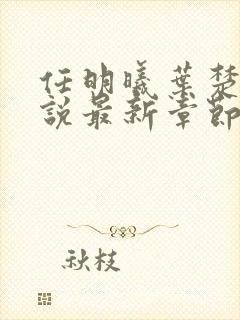 任明曦葉楚
說最新章節
秋枝